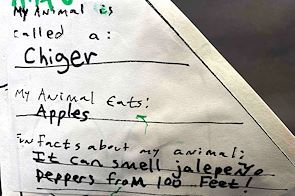 My Animal is
called a:
Chiger
My Animal Eats:
Apples
Fun facts about my animal:
It can smell jalepeño
peppers from 100 Feet!